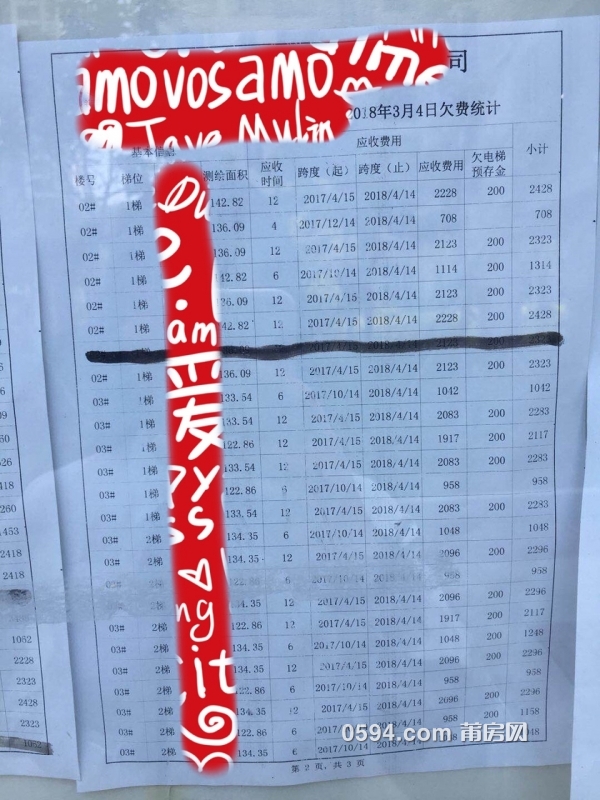 司
amovosamo
2018年3月4日欠费统计
基本信息 应收费用
楼号 梯位 测绘面积 应收时间 跨度（起） 跨度（止） 应收费用 欠电梯预存金 小计
02# 1梯 142.82 12 2017/4/15 2018/4/14 2228 200 2428
02# 1梯 136.09 4 2017/12/14 2018/4/14 708 708
02# 1梯 136.09 12 2017/4/15 2018/4/14 2123 200 2323
02# 1梯 142.82 6 2017/10/14 2018/4/14 1114 200 1314
02# 1梯 136.09 12 2017/4/15 2018/4/14 2123 200 2323
02# 1梯 142.82 12 2017/4/15 2018/4/14 2228 200 2428
02# 1梯 136.09 12 2017/4/15 2018/4/14 2123 200 2323
03# 1梯 133.54 6 2017/10/14 2018/4/14 1042 1042
03# 1梯 133.54 12 2017/4/15 2018/4/14 2083 200 2283
03# 1梯 122.86 12 2017/4/15 2018/4/14 1917 200 2117
03# 1梯 133.54 12 2017/4/15 2018/4/14 2083 200 2283
03# 1梯 122.86 6 2017/10/14 2018/4/14 958 958
03# 1梯 133.54 12 2017/4/15 2018/4/14 2083 200 2283
03# 2梯 134.35 6 2017/10/14 2018/4/14 1048 1048
03# 2梯 134.35 12 2017/4/15 2018/4/14 2096 200 2296
2梯 6 2017/10/14 2018/4/14 958 958
2梯 134.35 12 2017/4/15 2018/4/14 2096 200 2296
03# 2梯 12 2017/4/15 2018/4/14 1917 200 2117
03# 2梯 134.35 6 2017/10/14 2018/4/14 1048 200 1248
03# 2梯 134.35 12 2017/4/15 2018/4/14 2096 200 2296
03# 2梯 122.86 6 2017/10/14 2018/4/14 958 958
03# 2梯 134.35 12 2017/4/15 2018/4/14 2096 200 2296
03# 2梯 122.86 6 2017/10/14 2018/4/14 958 200 1158
03# 2梯 134.35 6 2017/10/14 2018/4/14 1048
第 2 页，共 3 页
am
爱友
ss
ng
it
1453
2418
2418
1062
2228
2228
2323
2428
2323
1062
0594.com 莆房网